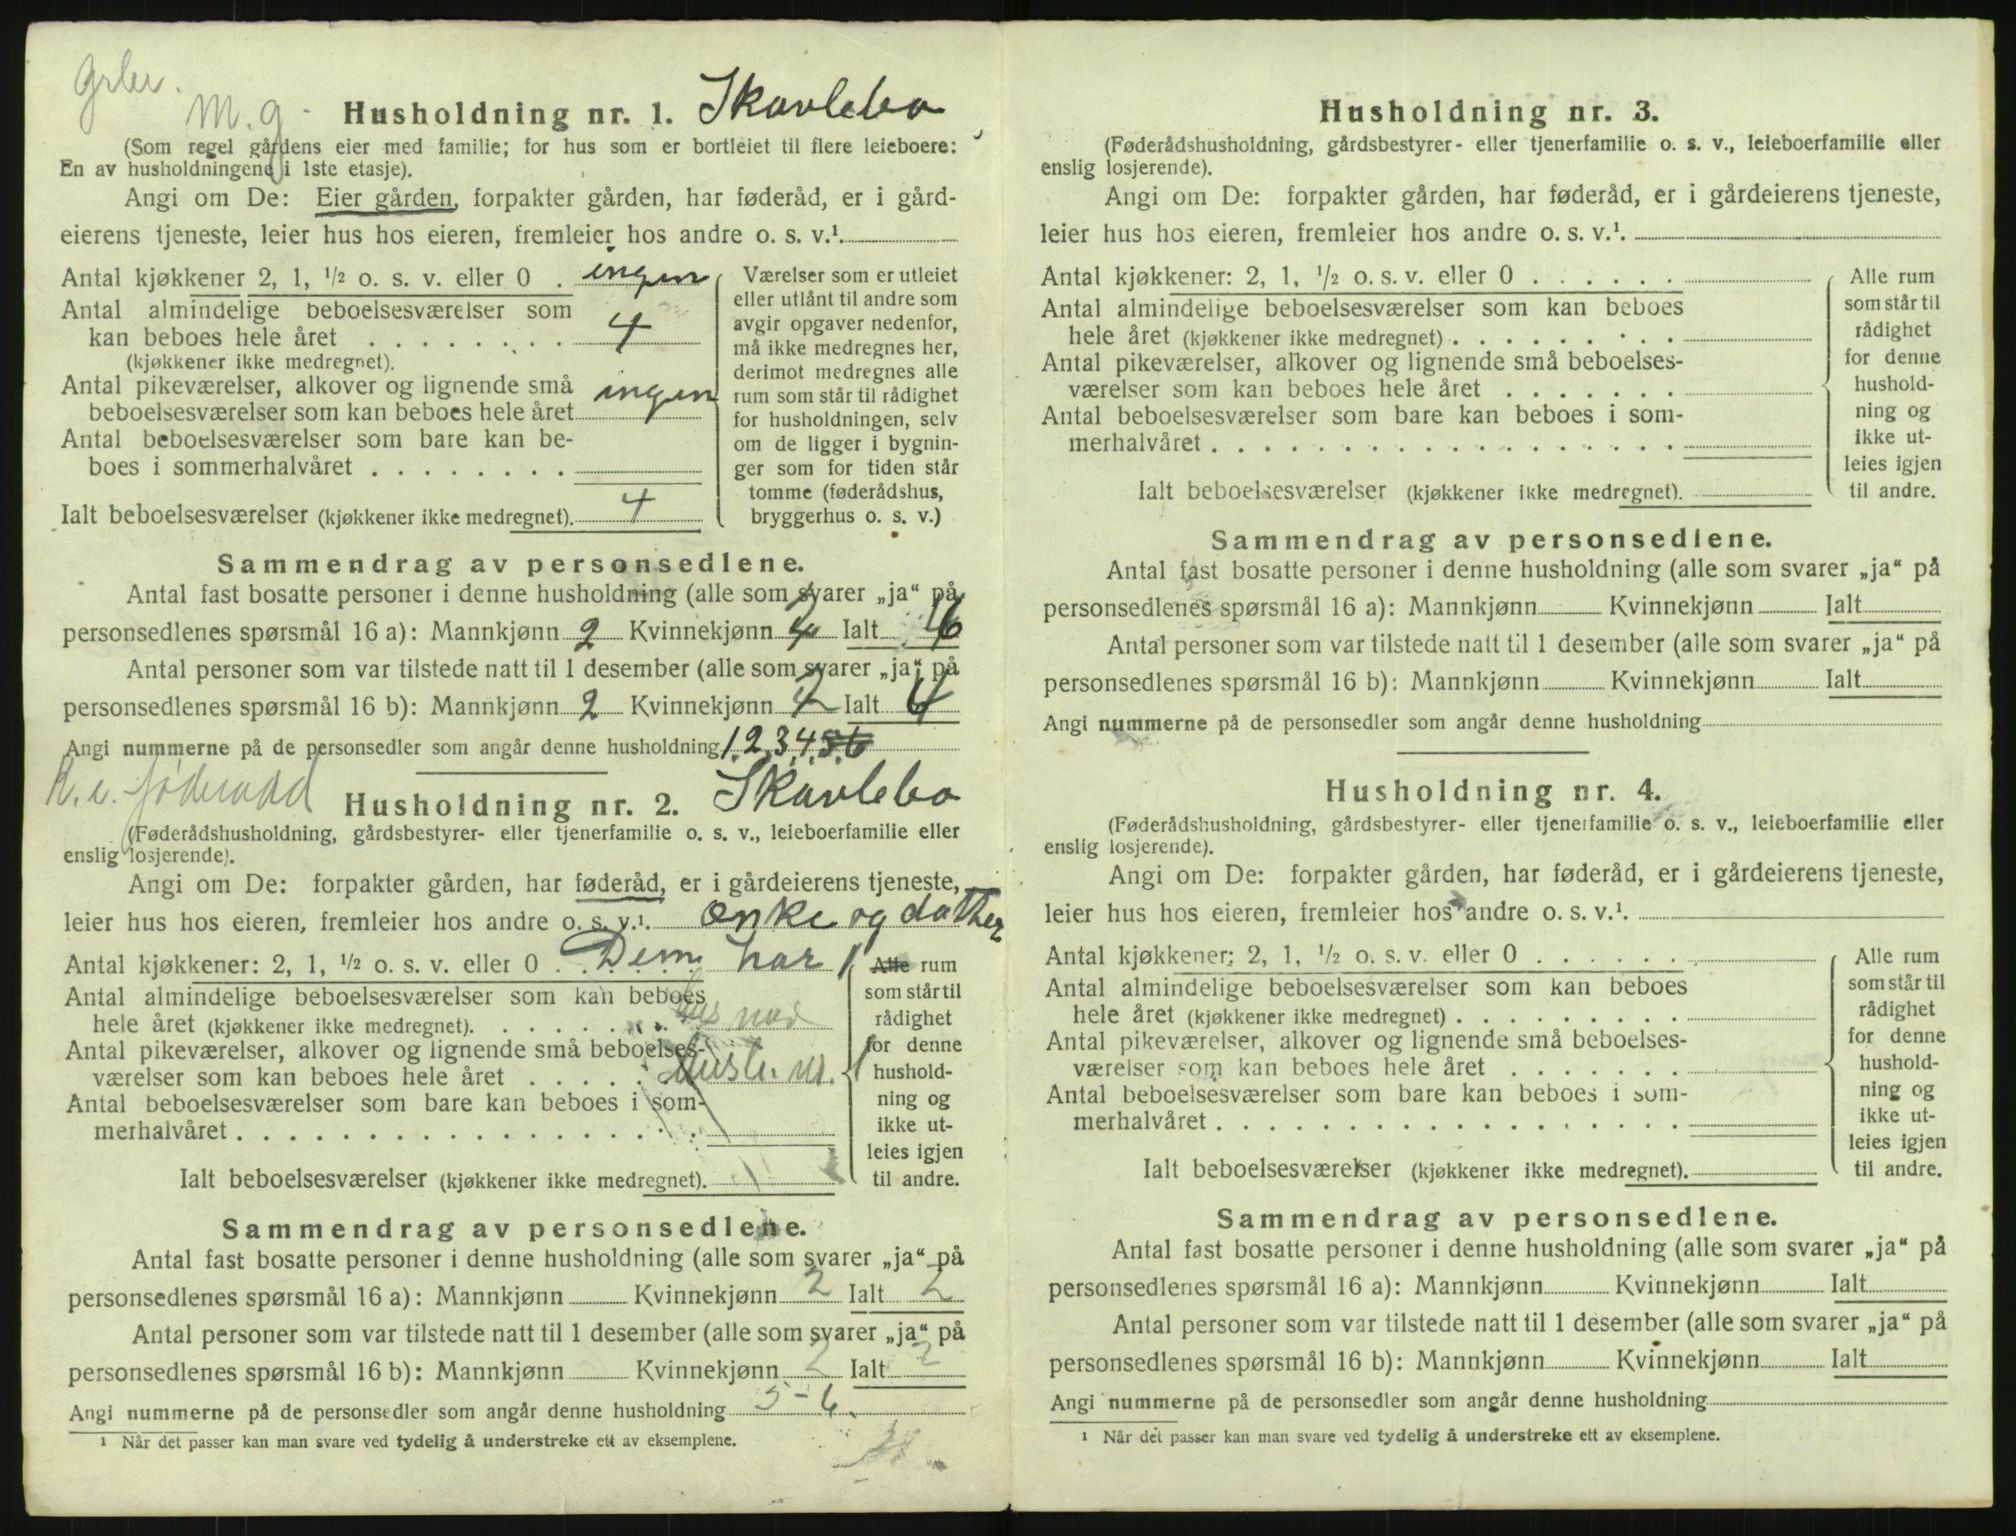 Grbr.
M. g. Husholdning nr. 1. Skavlebo
(Som regel gårdens eier med familie; for hus som er bortleiet til flere leieboere:
En av husholdningene i 1ste etasje).
Angi om De: Eier gården, forpakter gården, har føderåd, er i gård-
eierens tjeneste, leier hus hos eieren, fremleier hos andre o. s. v.¹.
Antal kjøkkener 2, 1, ½ o. s. v. eller 0 . ingen
Antal almindelige beboelsesværelser som
kan beboes hele året . . . . . . . . . 4
(kjøkkener ikke medregnet).
Antal pikeværelser, alkover og lignende små
beboelsesværelser som kan beboes hele året ingen
Antal beboelsesværelser som bare kan be-
boes i sommerhalvåret . . . . . . . .
Ialt beboelsesværelser (kjøkkener ikke medregnet). 4
Værelser som er utleiet
eller utlånt til andre som
avgir opgaver nedenfor,
må ikke medregnes her,
derimot medregnes alle
rum som står til rådighet
for husholdningen, selv
om de ligger i bygnin-
ger som for tiden står
tomme (føderådshus,
bryggerhus o. s. v.)
Sammendrag av personsedlene.
Antal fast bosatte personer i denne husholdning (alle som svarer „ja“ på
personsedlenes spørsmål 16 a): Mannkjønn 2 Kvinnekjønn 2 Ialt 4
Antal personer som var tilstede natt til 1 desember (alle som svarer „ja“ på
personsedlenes spørsmål 16 b): Mannkjønn 2 Kvinnekjønn 2 Ialt 4
Angi nummerne på de personsedler som angår denne husholdning 1, 2, 3, 4, 5, 6
K. e. føderådd Husholdning nr. 2. Skavlebo
(Føderådshusholdning, gårdsbestyrer- eller tjenerfamilie o. s. v., leieboerfamilie eller
enslig losjerende).
Angi om De: forpakter gården, har føderåd, er i gårdeierens tjeneste,
leier hus hos eieren, fremleier hos andre o. s. v.¹. enke og datter
Antal kjøkkener: 2, 1, ½ o. s. v. eller 0 . Dem har
Antal almindelige beboelsesværelser som kan beboes
hele året (kjøkkener ikke medregnet). . . . . . . .
Antal pikeværelser, alkover og lignende små beboelses-
værelser som kan beboes hele året . . . . . Hush. nr. 1
Antal beboelsesværelser som bare kan beboes i som-
merhalvåret . . . . . . . . . . . . . . . . . .
Ialt beboelsesværelser (kjøkkener ikke medregnet).
Alle rum
som står til
rådighet
for denne
hushold-
ning og
ikke ut-
leies igjen
til andre.
Sammendrag av personsedlene.
Antal fast bosatte personer i denne husholdning (alle som svarer „ja“ på
personsedlenes spørsmål 16 a): Mannkjønn Kvinnekjønn 2 Ialt 2
Antal personer som var tilstede natt til 1 desember (alle som svarer „ja“ på
personsedlenes spørsmål 16 b): Mannkjønn Kvinnekjønn 2 Ialt 2
Angi nummerne på de personsedler som angår denne husholdning 5-6.
¹ Når det passer kan man svare ved tydelig å understreke ett av eksemplene.
Husholdning nr. 3.
(Føderådshusholdning, gårdsbestyrer- eller tjenerfamilie o. s. v., leieboerfamilie eller
enslig losjerende).
Angi om De: forpakter gården, har føderåd, er i gårdeierens tjeneste,
leier hus hos eieren, fremleier hos andre o. s. v.¹.
Antal kjøkkener: 2, 1, ½ o. s. v. eller 0 . . . . . .
Antal almindelige beboelsesværelser som kan beboes
hele året (kjøkkener ikke medregnet) . . . . . . . . .
Antal pikeværelser, alkover og lignende små beboelses-
værelser som kan beboes hele året . . . . . . .
Antal beboelsesværelser som bare kan beboes i som-
merhalvåret . . . . . . . . . . . . . . . . . .
Ialt beboelsesværelser (kjøkkener ikke medregnet).
Alle rum
som står til
rådighet
for denne
hushold-
ning og
ikke ut-
leies igjen
til andre.
Sammendrag av personsedlene.
Antal fast bosatte personer i denne husholdning (alle som svarer „ja“ på
personsedlenes spørsmål 16 a): Mannkjønn Kvinnekjønn Ialt
Antal personer som var tilstede natt til 1 desember (alle som svarer „ja“ på
personsedlenes spørsmål 16 b): Mannkjønn Kvinnekjønn Ialt
Angi nummerne på de personsedler som angår denne husholdning
Husholdning nr. 4.
(Føderådshusholdning, gårdsbestyrer- eller tjenerfamilie o. s. v., leieboerfamilie eller
enslig losjerende).
Angi om De: forpakter gården, har føderåd, er i gårdeierens tjeneste,
leier hus hos eieren, fremleier hos andre o. s. v.¹.
Antal kjøkkener: 2, 1, ½ o. s. v. eller 0 . . . . . .
Antal almindelige beboelsesværelser som kan beboes
hele året (kjøkkener ikke medregnet) . . . . . . . . .
Antal pikeværelser, alkover og lignende små beboelses-
værelser som kan beboes hele året . . . . . . .
Antal beboelsesværelser som bare kan beboes i som-
merhalvåret . . . . . . . . . . . . . . . . . .
Ialt beboelsesværelser (kjøkkener ikke medregnet).
Alle rum
som står til
rådighet
for denne
hushold-
ning og
ikke ut-
leies igjen
til andre.
Sammendrag av personsedlene.
Antal fast bosatte personer i denne husholdning (alle som svarer „ja“ på
personsedlenes spørsmål 16 a): Mannkjønn Kvinnekjønn Ialt
Antal personer som var tilstede natt til 1 desember (alle som svarer „ja“ på
personsedlenes spørsmål 16 b): Mannkjønn Kvinnekjønn Ialt
Angi nummerne på de personsedler som angår denne husholdning
¹ Når det passer kan man svare ved tydelig å understreke ett av eksemplene.